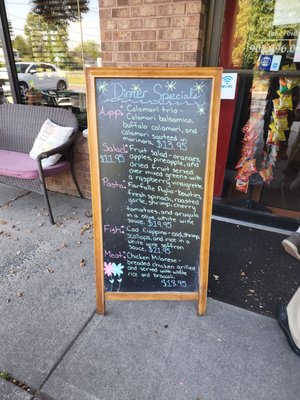 Dinner Specials
App: Calamari trio -
Calamari balsamico,
buffalo calamari, and
calamari seafood in
marinara. $13.95
Salad: Fruit salad - oranges,
$11.95 apples, pineapple, and
dried fruit served
over mixed greens with
a raspberry vinaigrette.
Pasta: Farfalle Puglia - bowties,
fresh spinach, roasted
garlic, shrimp, cherry
tomatoes, and arugula
in a olive oil white wine
sauce. $21.95
Fish: Cod Cioppino - cod, shrimp,
scallops, and rice in a
white wine saffron
sauce. $21.95
Meat: Chicken Milanese -
breaded chicken grilled
and served with white
rice and broccoli.
$18.95